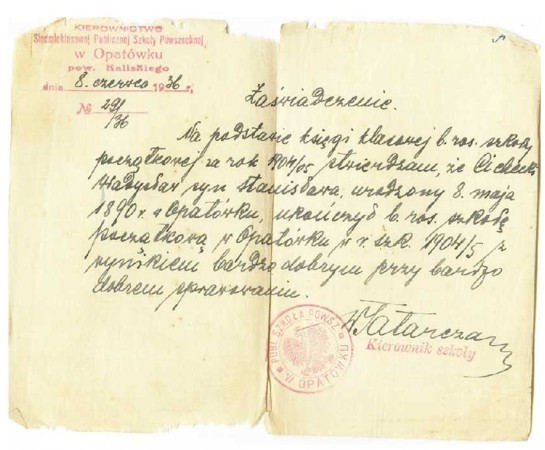 KIEROWNICTWO
Siedmioklasowej Publicznej Szkoły Powszechnej
w Opatówku
pow. Kaliskiego
dnia 8. czerwca 1936 r,
№ 291/36
Zaświadczenie.
Na podstawie księgi klasowej b. ros. szkoły
początkowej za rok 1904/05 stwierdzam, że Cichecki
Władysław syn Stanisława, urodzony 8. maja
1890 r. w Opatówku, ukończył b. ros. szkołę
początkową w Opatówku w r. szk. 1904/5 z
wynikiem bardzo dobrym przy bardzo
dobrem sprawowaniu.
PUBL. SZKOŁA POWSZ.
W OPATÓWKU
Kierownik szkoły